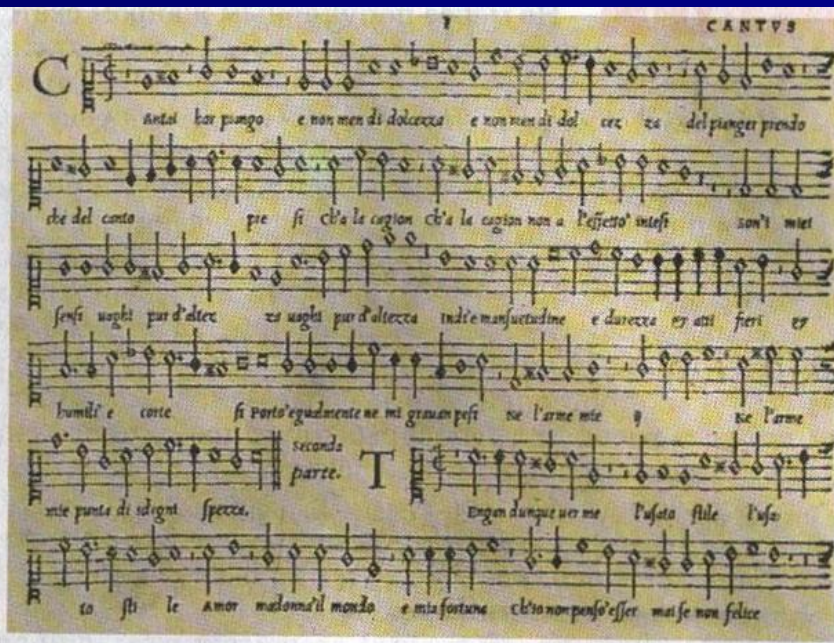 1 CANTVS
C Antai hor piango e non men di dolcezza e non men di dol cez za del pianger prendo
che del canto pre si ch'a la cagion ch'a la cagion non a l'effetto' intesi son'i miei
sensi uaghi pur d'altez za uaghi pur d'altezza Indi'e mansuetudine e durezza et atti fieri et
humili' e corte si Porto'egualmente ne mi grauan pesi Ne l'arme mie ij Ne l'arme
mie punta di sdegni spezza. Seconda
parte. T Engan dunque uer me l'usato stile l'usa
to sti le Amor madonna'il mondo e mia fortuna Ch'io non penso'esser mai se non felice